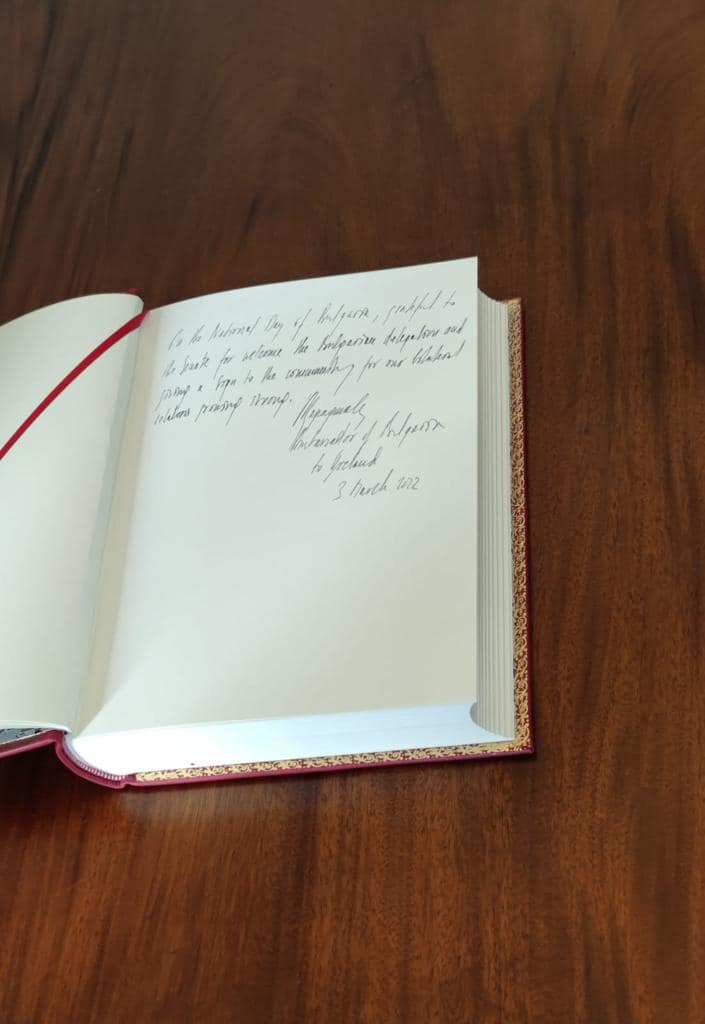 On the National Day of Bulgaria, grateful to
the Senate for welcome the Bulgarian delegation and
giving a sign to the community for our bilateral
relations growing strong.
Ambassador of Bulgaria
to Ireland
3 March 2022